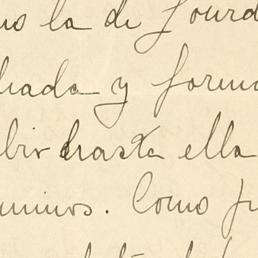 mo la de Lourd
hada y forma
bir hasta ella
minos. Como f